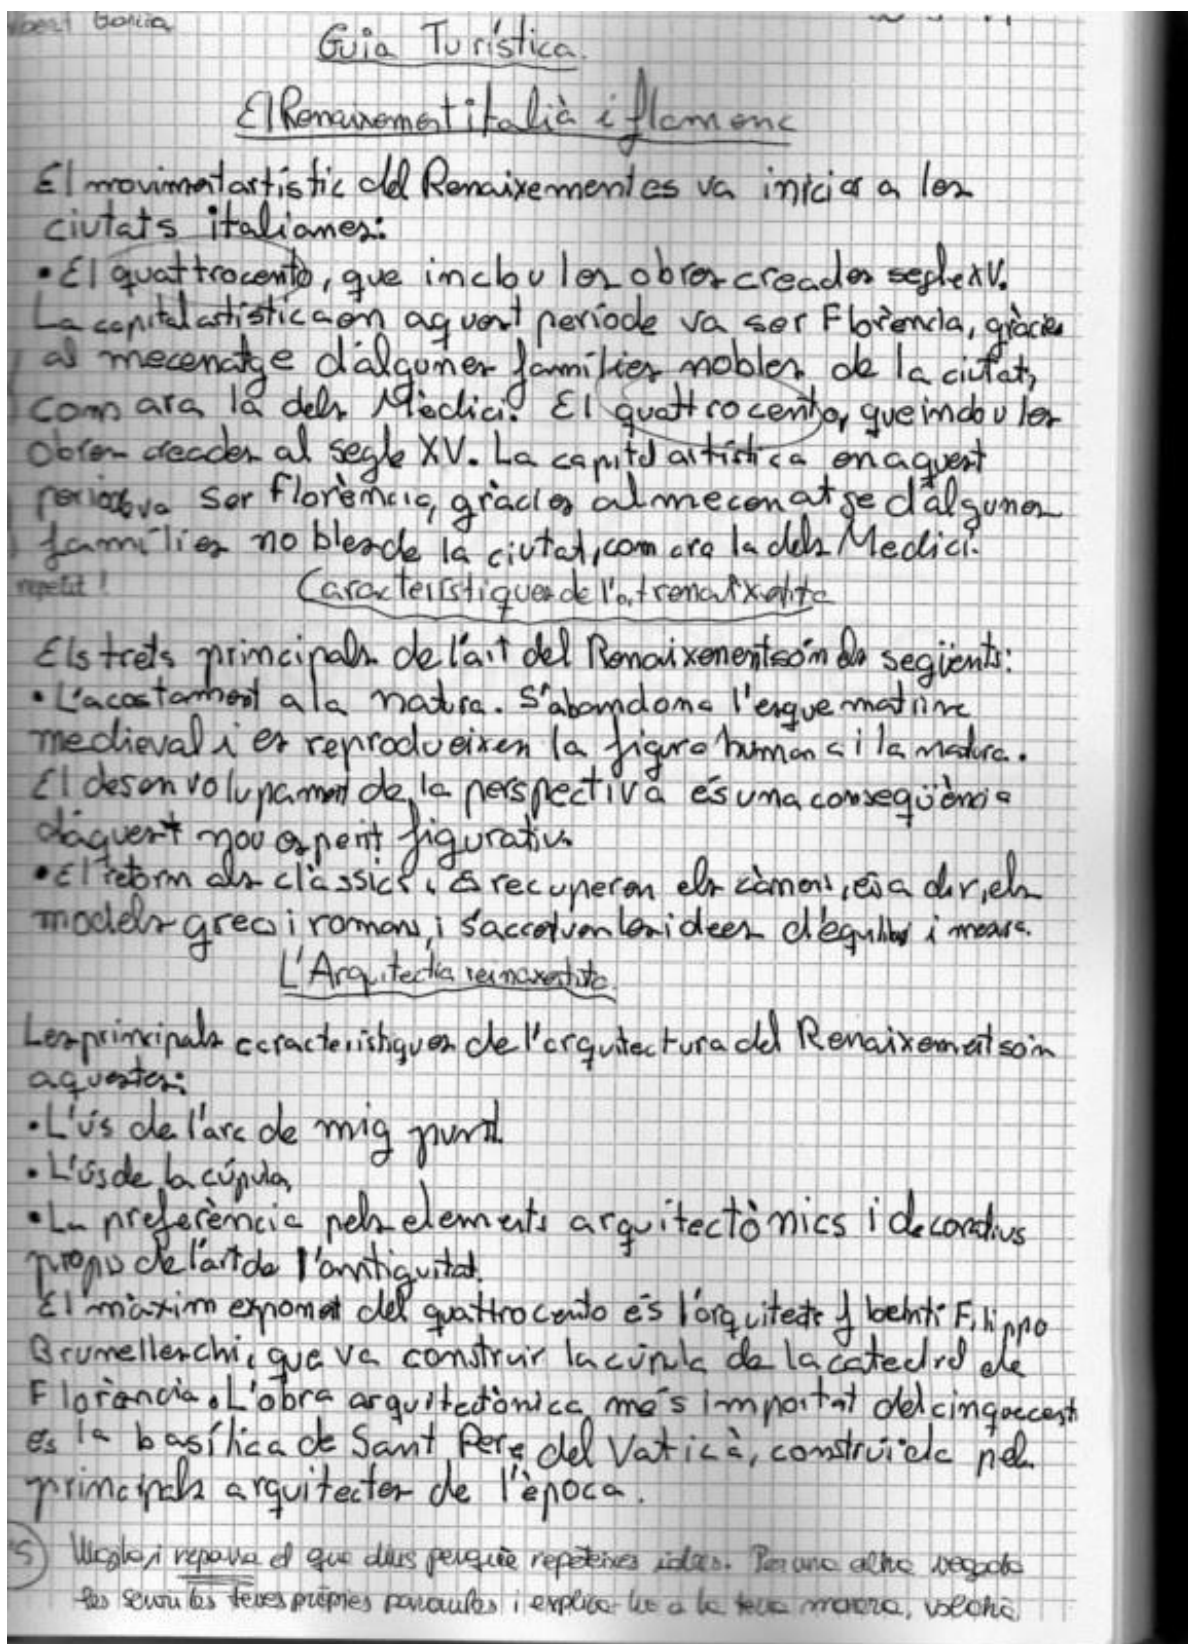 Guia Turística.
El Renaixement italià i flamenc
El moviment artístic del Renaixement es va iniciar a les
ciutats italianes:
• El quattrocento, que inclou les obres creades segle XV.
La capital artística en aquest període va ser Florència, gràcies
al mecenatge d'algunes famílies nobles de la ciutat,
com ara la dels Mèdici. El quattrocento, que inclou les
obres creades al segle XV. La capital artística en aquest
període va ser Florència, gràcies al mecenatge d'algunes
famílies nobles de la ciutat, com ara la dels Medici.
repetit!
Característiques de l'art renaixentita
Els trets principals de l'art del Renaixement són els següents:
• L'acostament a la natura. S'abandona l'esquematisme
medieval i es reprodueixen la figura humana i la natura.
El desenvolupament de la perspectiva és una conseqüència
d'aquest nou esperit figuratiu.
• El retorn als clàssics, es recuperen els cànons, és a dir, els
models grec i romans, i les idees d'equilibri i mesura.
L'Arquitectia
Les principals característiques de l'arquitectura del Renaixement són
aquestes:
• L'ús de l'arc de mig punt
• L'ús de la cúpula
• La preferència pels elements arquitectònics i decoratius
propis de l'art de l'antiguitat.
El màxim exponent del quattrocento és l'arquitecte florentí Filippo
Brunelleschi, que va construir la cúpula de la catedral de
Florència. L'obra arquitectònica més important del cinquecento
es la basílica de Sant Pere del Vaticà, construïda pels
principals arquitectes de l'època.
repassa el que dius perquè repeteixes idees. Per una altra vegada
fes servir les teves pròpies paraules i explica-ho a la teva manera,